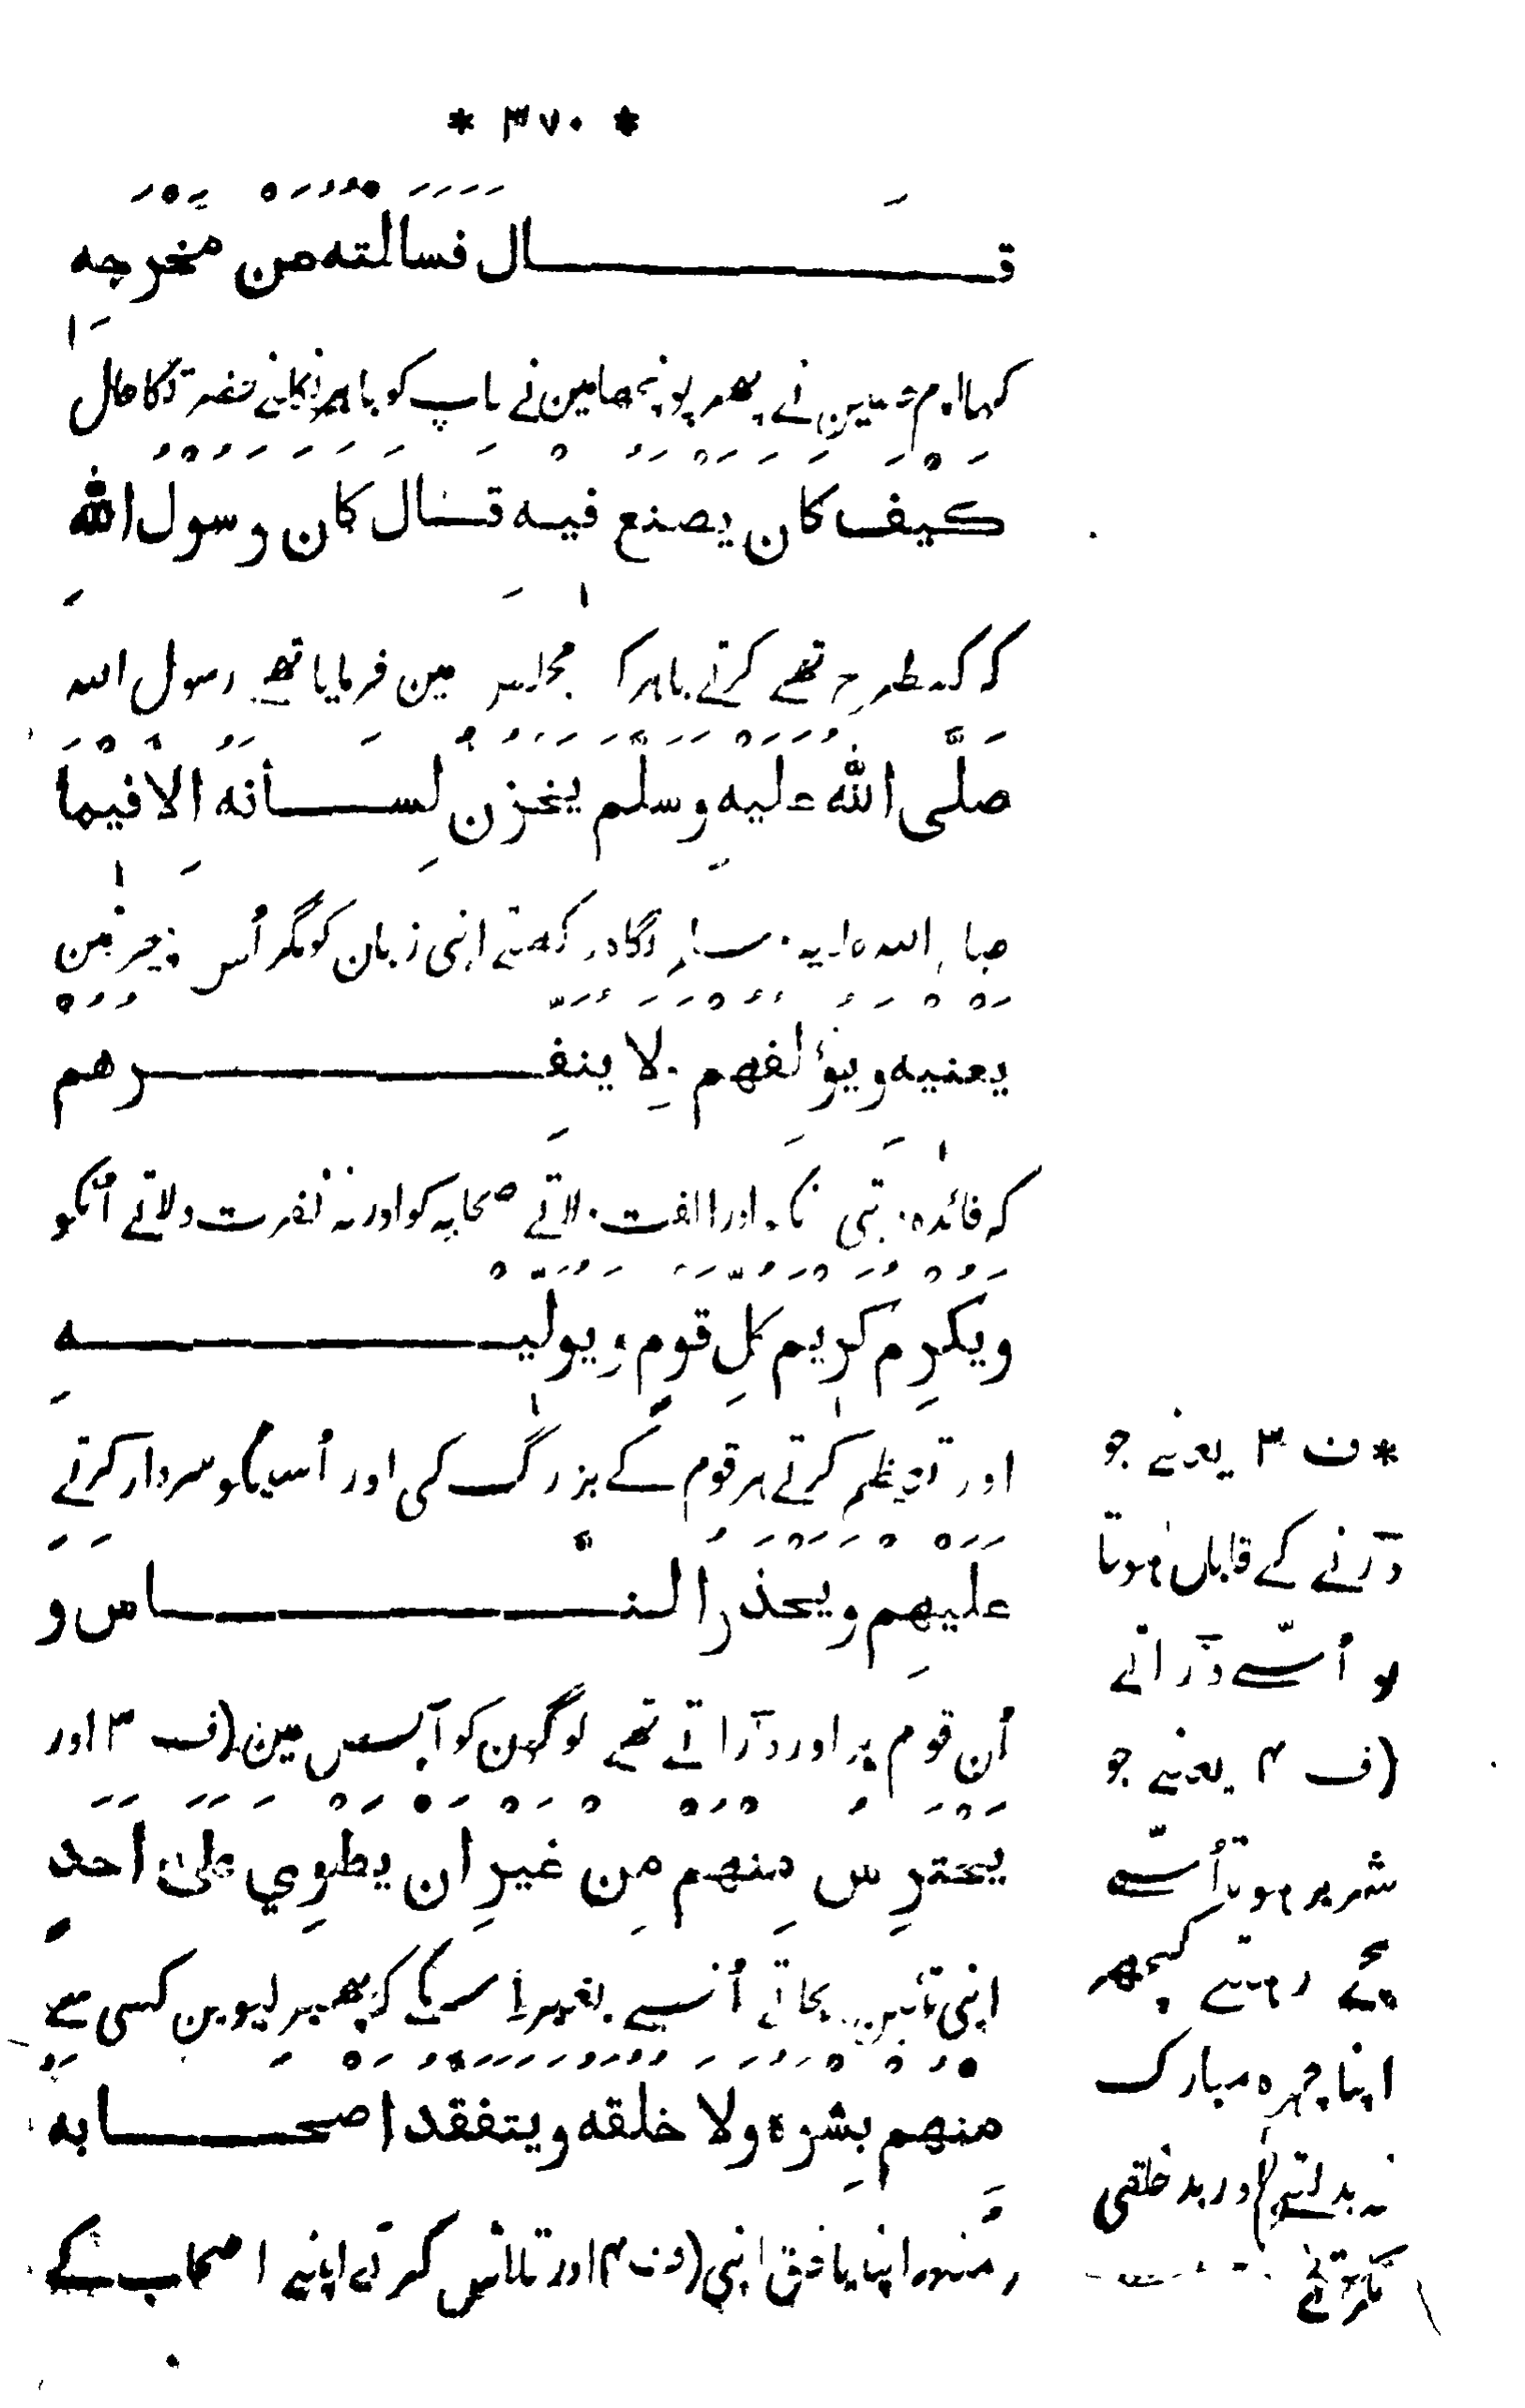 * ٣٧٠ *
قال فسالته من مخرجه
کہا امام حسین نے پھر پونچھا مین نے باپ کو باہر نکلنے حضرت کا حال
كيف كان يصنع فيه قال كان رسول الله
کہ کسطرح تھے کرتے باہر کا مجلس مین فرمایا تھے رسول اللہ
صَلَّى الله عليه وسلَّم يخزن لِسانه الّا فيما
اللہ علیہ نگاہ رکھتے اپنی زبان کو مگر اُس چیز مین
يعنيه ويؤلفهم ولا ينفِرهم
کہ فائدہ اور الفت دلاتے صحابہ کو اور نہ نفرت دلاتے اُنکو
ويكرِم كريم كلِ قومٍ ويولّيه
اور تعظیم کرتے ہر قوم کے بزرگ کی اور اُسیکو سردار کرتے
عليهِم ويحذر الناس و
اُن قوم پر اور ڈراتے تھے لوگون کو آپس مین (ف ٣ اور
يحترِس مِنهم مِن غيرِ ان يطوِي على احدٍ
اپنی تئین بچاتے اُنسے بغیر اسکے کہ پھیر لیوین کسی سے
مِنهم بِشره ولا خلقه ويتفقد اصحابه
منہہ اپنا یا خلق اپنی (ف ۴ اور تلاش کرتے اپنے اصحاب کے
* ف ٣ یعنے جو
ڈرنے کے قابل ہوتا
تو اُسّے ڈراتے
(ف ۴ یعنے جو
شریر ہوتا اُسّے
بچے رہتے کچھ
اپنا چہرہ مبارک
نہ بدلتے اور بد خلقی
نکرتے